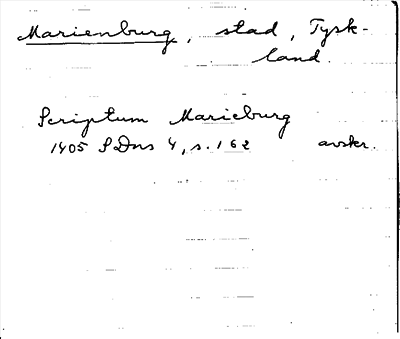 Marienburg, stad, Tysk-
land.
Scriptum Marieburg
1405 SDns 4, s. 162 avskr.